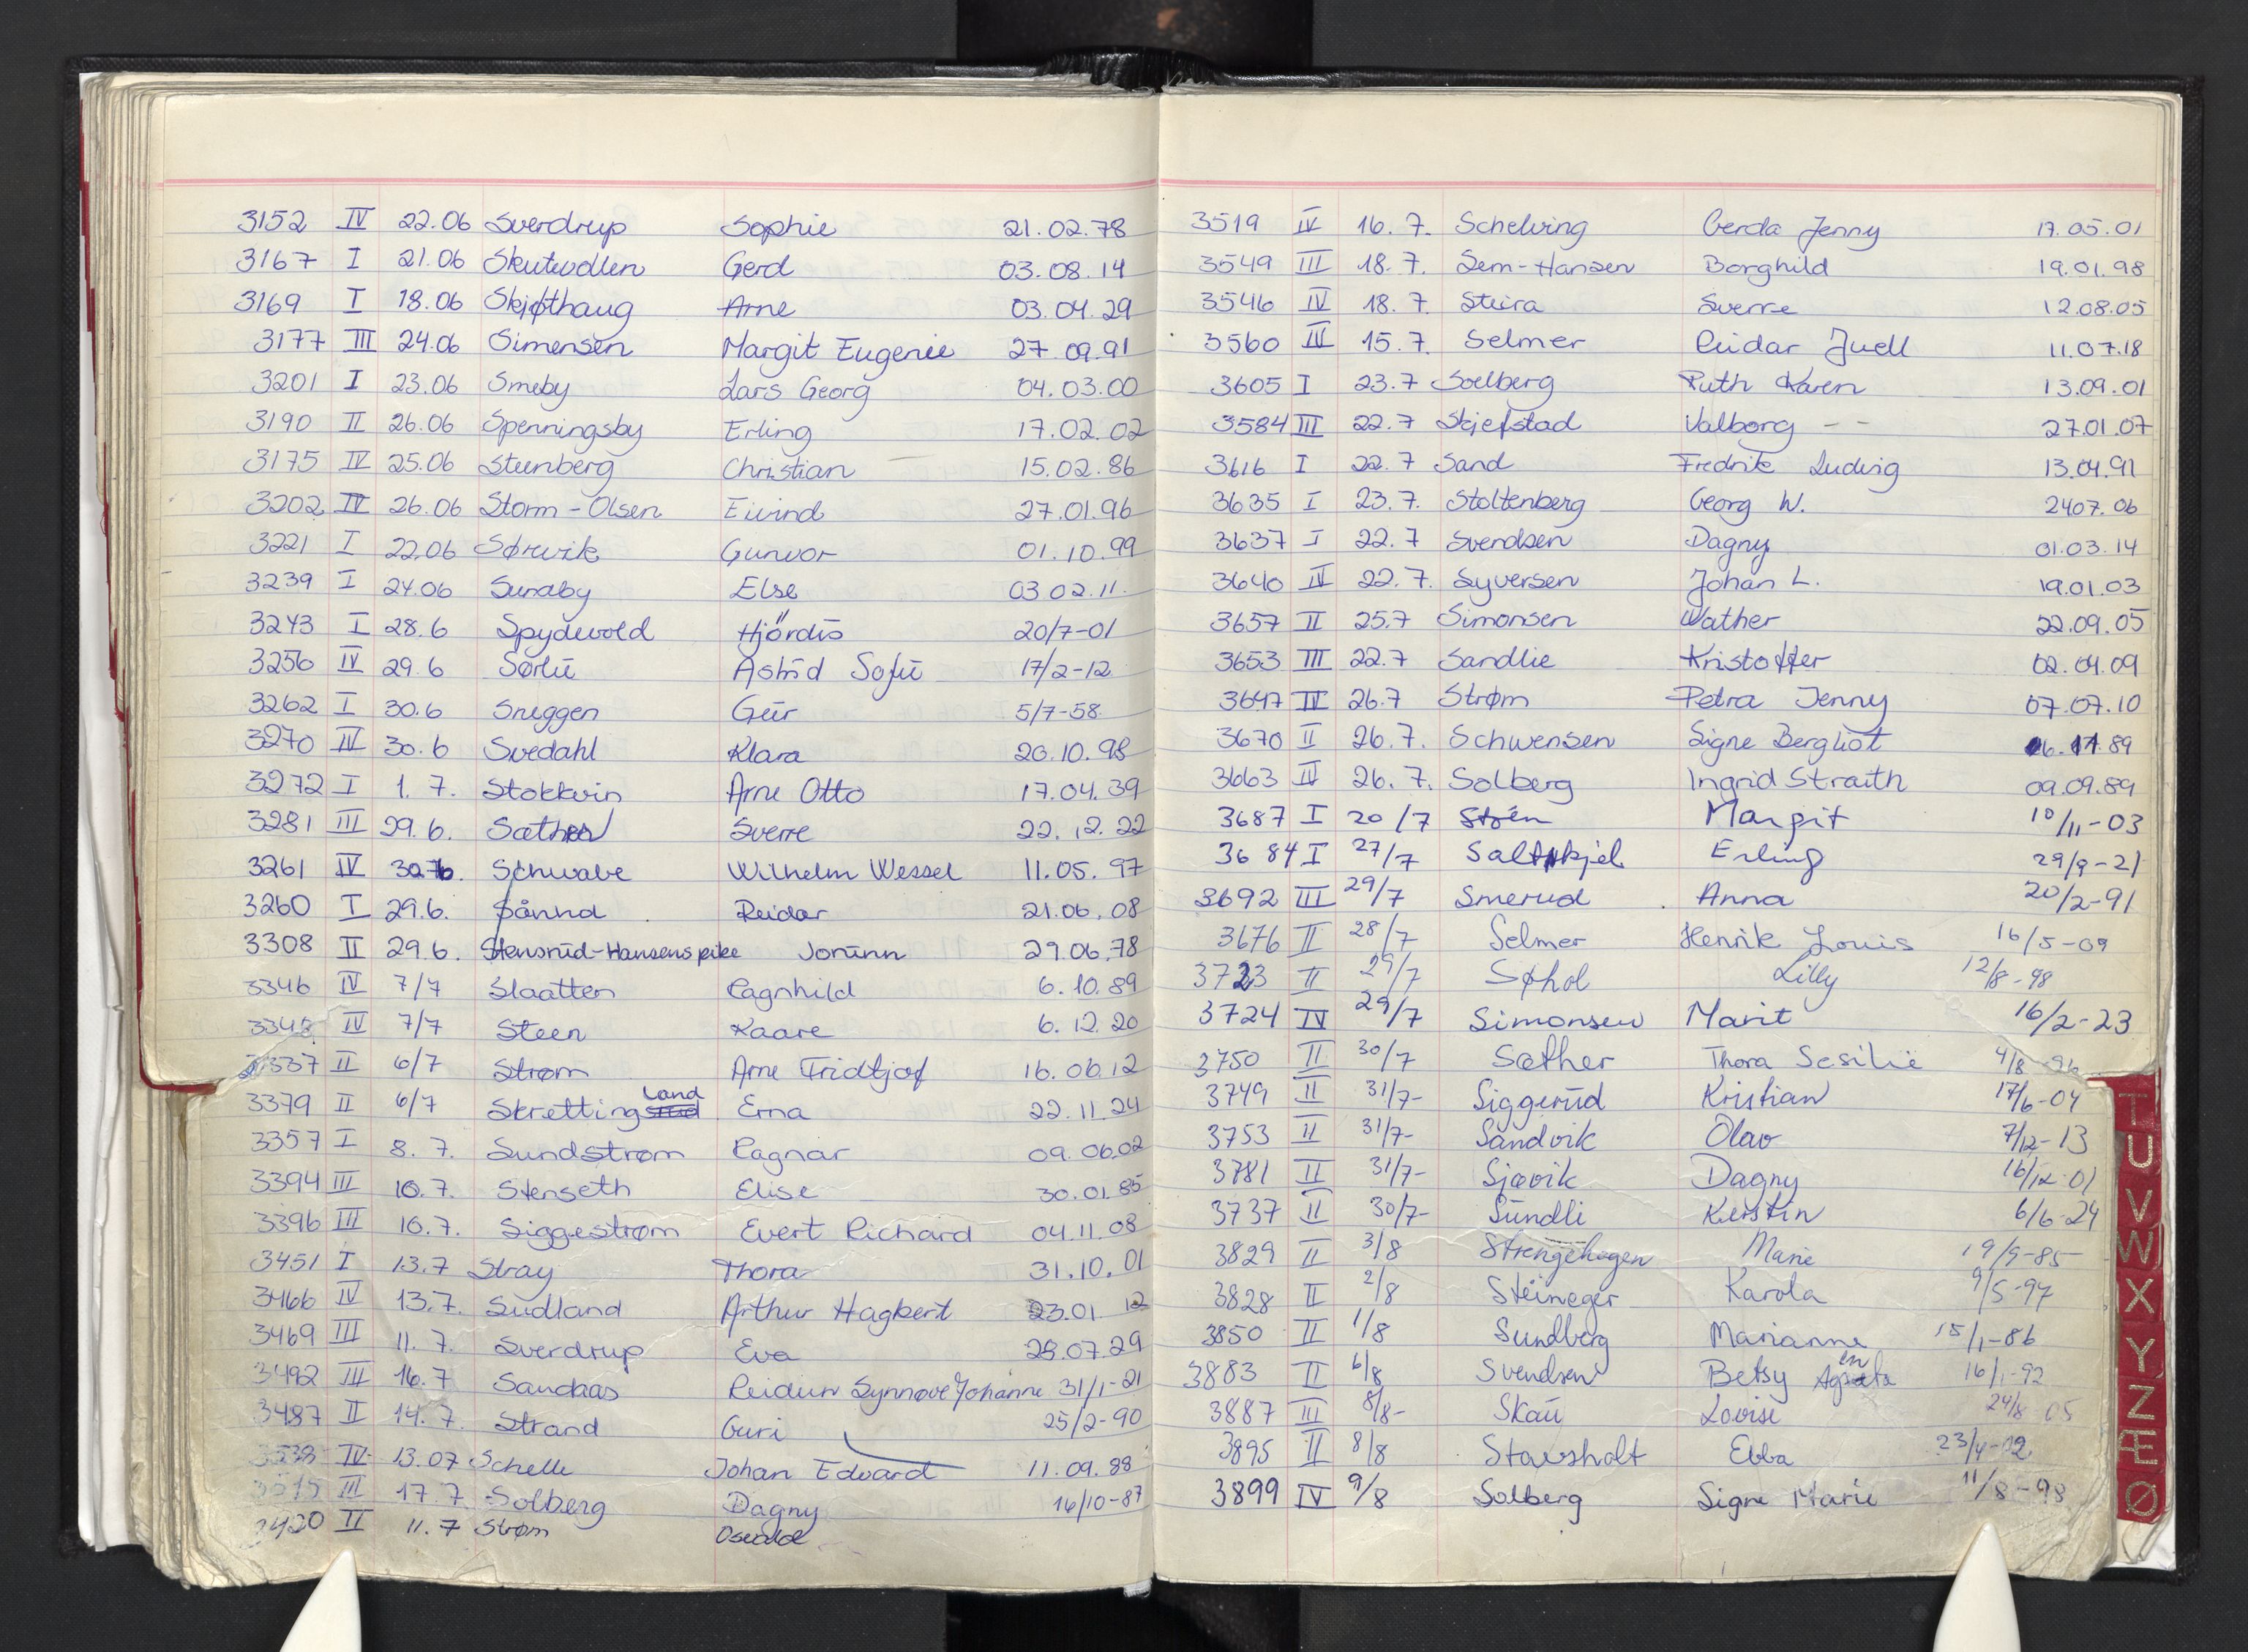 3152 IV 22.06 Sverdrup Sophie 21.02.78
3167 I 21.06 Skutvollen Gerd 03.08.14
3169 I 18.06 Skjøthaug Arne 03.04.29
3177 III 24.06 Simensen Margit Eugenie 27.09.91
3201 I 23.06 Smeby Lars Georg 04.03.00
3190 II 26.06 Spenningsby Erling 17.02.02
3175 IV 25.06 Steenberg Christian 15.02.86
3202 IV 26.06 Storm-Olsen Eivind 27.01.96
3221 I 22.06 Sørvik Gunvor 01.10.99
3239 I 24.06 Sunaby Else 03 02.11.
3243 I 28.6 Spydevold Hjördis 20/7-01
3256 IV 29.6 Sørlie Astrid Sofie 17/2-12
3262 I 30.6 Sneggen Geir 5/7-58
3270 IV 30.6 Svedahl Klara 20.10.98
3272 I 1. 7. Stokkvin Arne Otto 17.04.39
3281 III 29.6. Sæther Sverre 22.12.22
3261 IV 30.6. Schwabe Wilhelm Wessel 11.05.97
3260 I 29.6. Sånnd Reidar 21.06.08
3308 II 29.6. Stensrud-Hansenspike Jorunn 29.06.78
3346 IV 7/7 Slaatten Ragnhild 6.10.89
3348 IV 7/7 Steen Kaare 6.12.20
3337 II 6/7 Strøm Arne Fridtjof 16.06.12
3379 II 6/7 Skrettingland Erna 22.11.24
3357 I 8. 7. Sundstrøm Ragnar 09.06.02
3394 III 10.7. Stenseth Elise 30.01.85
3396 III 10.7. Siggestrøm Evert Richard 04.11.08
3451 I 13.7 Stray Thora 31.10.01
3466 IV 13.7. Sudland Arthur Hagbert 23.01 12
3469 III 11. 7. Sverdrup Eva 28.07.29
3492 III 16.7 Sandaas Reidun Synnøve Johanne 31/1-21
3487 II 14. 7. Strand Guri 25/2-90
3538 IV 13.07 Schelle Johan Edvard 11.09.88
3515 III 17.7 Solberg Dagny 16/10-87
3420 II 11.7 Strøm Osvald
3519 IV 16. 7. Schelving Gerda Jenny 17.05.01
3549 III 18. 7. Sem-Hansen Borghild 19.01.98
3546 IV 18. 7. Steira Sverre 12.08.05
3560 IV 15.7. Selmer Reidar Juell 11.07.18
3605 I 23.7 Soelberg Ruth Karen 13.09.01
3584 III 22.7 Skjefstad Valborg -- 27.01.07
3616 I 22.7 Sand Fredrik Ludvig 13.04.91
3635 I 23.7. Stoltenberg Georg W. 2407.06
3637 I 22.7 Svendsen Dagny 01.03.14
3640 IV 22.7. Syversen Johan L. 19.01.03
3657 II 25.7 Simonsen Wather 22.09.05
3653 III 22.7 Sandlie Kristoffer 02.04.09
3647 IV 26.7 Strøm Petra Jenny 07.07.10
3670 II 26.7. Schwensen Signe Bergliot 06.11.89
3663 IV 26.7. Solberg Ingrid Straith 09.09.89
3687 I 20/7 Stoen Margit 10/11-03
3684 I 27/7 Saltskjel Erling 29/9-21
3692 III 29/7 Smerud Anna 20/2-91
3676 II 28/7 Selmer Henrik Louis 16/5-09
3723 II 29/7 Søhol Lilly 12/8-98
3724 IV 29/7 Simonsen Marit 16/2-23
3750 II 30/7 Sæther Thora Sesilie 4/8-96
3749 II 31/7- Siggerud Kristian 17/6-04
3753 II 31/7- Sandvik Olav 7/12-13
3781 II 31/7- Sjøvik Dagny 16/12-01
3737 II 30/7- Sundli Kerstin 6/6-24
3829 II 3/8 Strengehagen Marie 19/9-85
3828 II 2/8 Steineger Karola 9/5-97
3850 II 1/8 Sundberg Marianne 15/1-86
3883 II 6/8 Svendsen Betsy 16/1-92
3887 III 8/8- Skau Lovise 24/8 05
3895 II 8/8 Stavsholt Ebba 23/4-02
3899 IV 9/8 Solberg Signe Marie 11/8-98
T
U
V
W
X
Y
Z
Æ
Ø